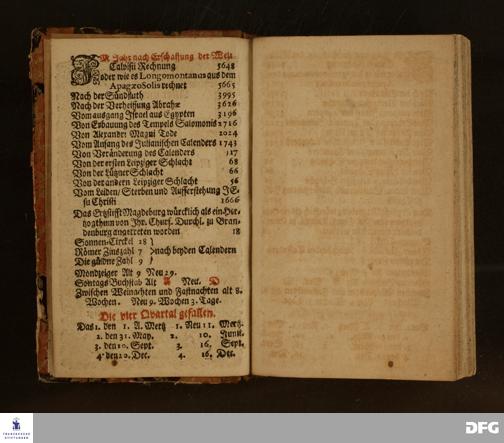 IM Jahr nach Erschaffung der Welt
Calvisii Rechnung 5648
oder wie es Longomontanus aus dem
ApagæoSolis rechnet 5665
Nach der Sündfluth 3995
Nach der Verheissung Abrahæ 3626
Vom ausgang Israel aus Egypten 3196
Von Erbauung des Tempels Salomonis 2716
Von Alexandri Magni Tode 2024
Vom Anfang des Julianischen Calenders 1743
Von Veränderung des Calenders 117
Von der ersten Leipziger Schlacht 68
Von der Lützner Schlacht 66
Von der andern Leipziger Schlacht 56
Vom Leiden/ Sterben und Aufferstehung JE-
su Christi 1666
Das Ertzstifft Magdeburg würcklich als ein Her-
zogthum von Ihr. Churf. Durchl. zu Bran-
denburg angetreten worden 18
Sonnen-Circkel 18
Römer Zinszahl 7 } nach beyden Calendern
Die güldne Zahl 9
Mondzeiger Alt 9 Neu 29.
Sontags Buchstab Alt Neu. D
Zwischen Weinachten und Fastnachten alt 8.
Wochen. Neu 9. Wochen 3. Tage.
Die vier Qvartal gefallen.
Das 1. den 1. A. Mertz 1. Neu 11. Mertz.
2. den 31. May. 2. 10. Junii.
3. den 10. Sept. 3. 16. Sept.
4. den 20. Dec. 4. 16. Dec.
FRANCKESCHE
STIFTUNGEN
DFG